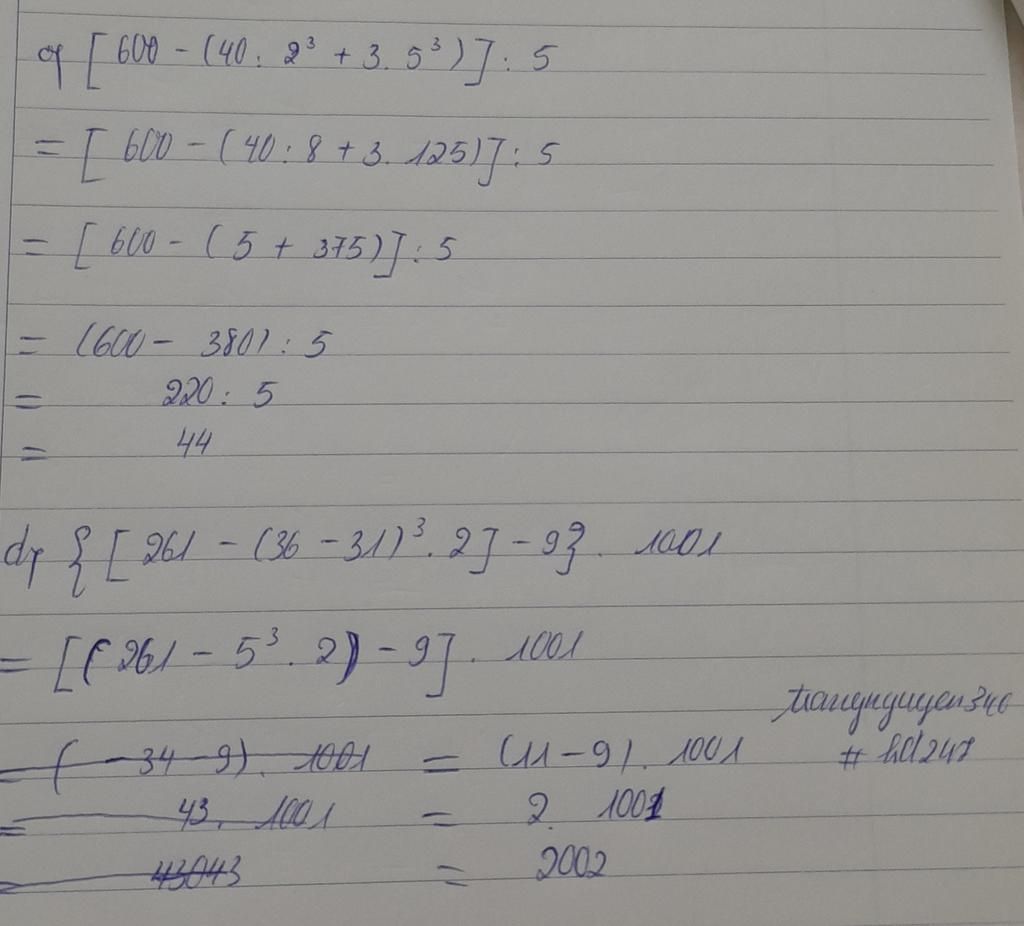 c) [600 - (40 : 2³ + 3. 5³)] : 5
= [600 - (40 : 8 + 3. 125)] : 5
= [600 - (5 + 375)] : 5
= (600 - 380) : 5
= 220 : 5
= 44
d) {[261 - (36 - 31)³. 2] - 9}. 1001
= [(261 - 5³. 2) - 9]. 1001
= (-34-9). 1001 = (11-9). 1001
= 43. 1001 = 2. 1001
= 43043 = 2002
trangnguyen346
# hd247